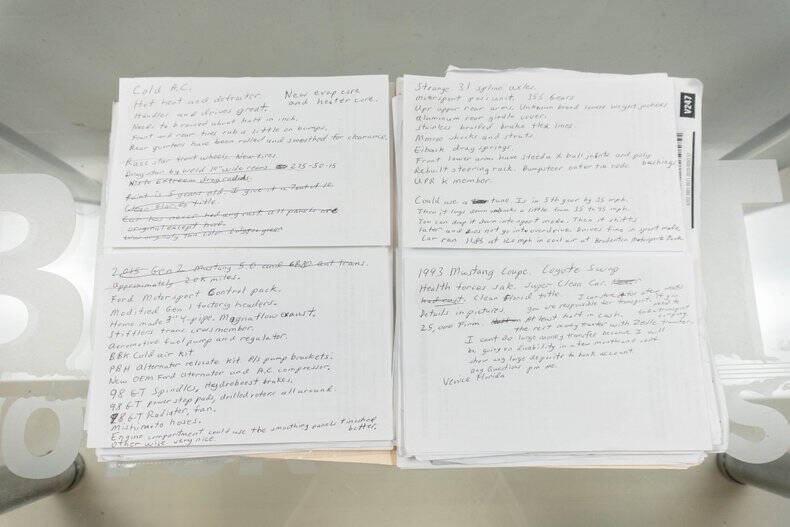 Cold A.C.
Hot heat and defroster. New evap core
and heater core.
Handles and drives great.
Needs to be raised about half in inch.
Front and rear tires rub a little on bumps.
Rear quarters have been rolled and smoothed for clearance.
Race star front wheels. New tires
Drag star by weld 10" wide rears. 275-50-15
title.
Car has never had any rust. all panels are
original except hood.
2015 Gen 2 Mustang 5.0 and 6R80 aut trans.
Approximately 20K miles.
Ford Motorsport Control pack.
Modified Gen 1 factory headers.
Home made 3" Y-pipe. Magnaflow exaust.
Stifflers trans crossmember.
Aeromotive fuel pump and regulator.
BBK Cold air kit
PBH Alternator relocate kit P/s pump brackets.
New OEM Ford alternator and A.C compressor.
98 GT Spindles, Hydroboost brakes.
98 GT power stop pads, drilled rotors all around.
98 GT Radiator, fan.
Mishimoto hoses.
Engine compartment could use the smoothing panels finished
better.
Other wise very nice.
Strange 31 spline axles.
Motorsport posi unit. 355 Gears
Upr upper rear arms. Unknown brand lowers weight jackers
Aluminum rear girdle cover.
Stainless braided brake flex lines.
Monroe shocks and struts.
Eibach drag springs.
Front lower arm have Steeda X ball joints and poly
bushings.
Rebuilt steering rack. Bumpsteer outer tie rods
UPR K member.
Could use a tune. Is in 5th gear by 35 mph.
Then it lugs down a little from 35 to 45 mph.
You can drop it down into sport mode. Then it shifts
later and does not go into overdrive. Drives fine in sport mode.
Car ran 11.85 at 120 mph in cool air at Bradenton Motorsports Park
V247
1993 Mustang Coupe. Coyote Swap
Health forces sale. Super Clean Car.
Clean Florid title.
Details in pictures you are responsible for transport.
25,000 Firm. At least half in cash.
the rest money transfer with Zelle transfer.
I can't do large money transfer because I will
be going on disability in a few months and can't
show any large deposits to bank account.
any Questions pm me.
Venice Florida